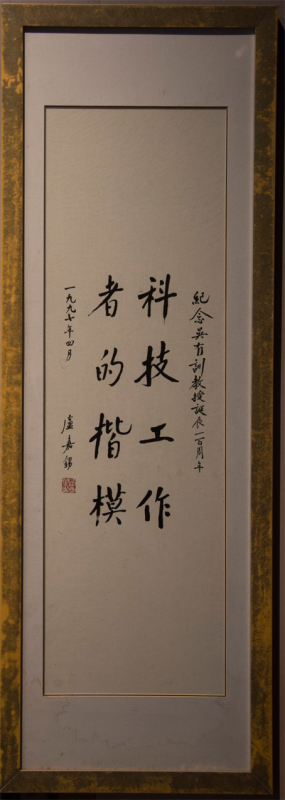 紀念吴有訓教授誕辰一百周年
科技工作
者的揩模
一九九七年四月
盧嘉錫